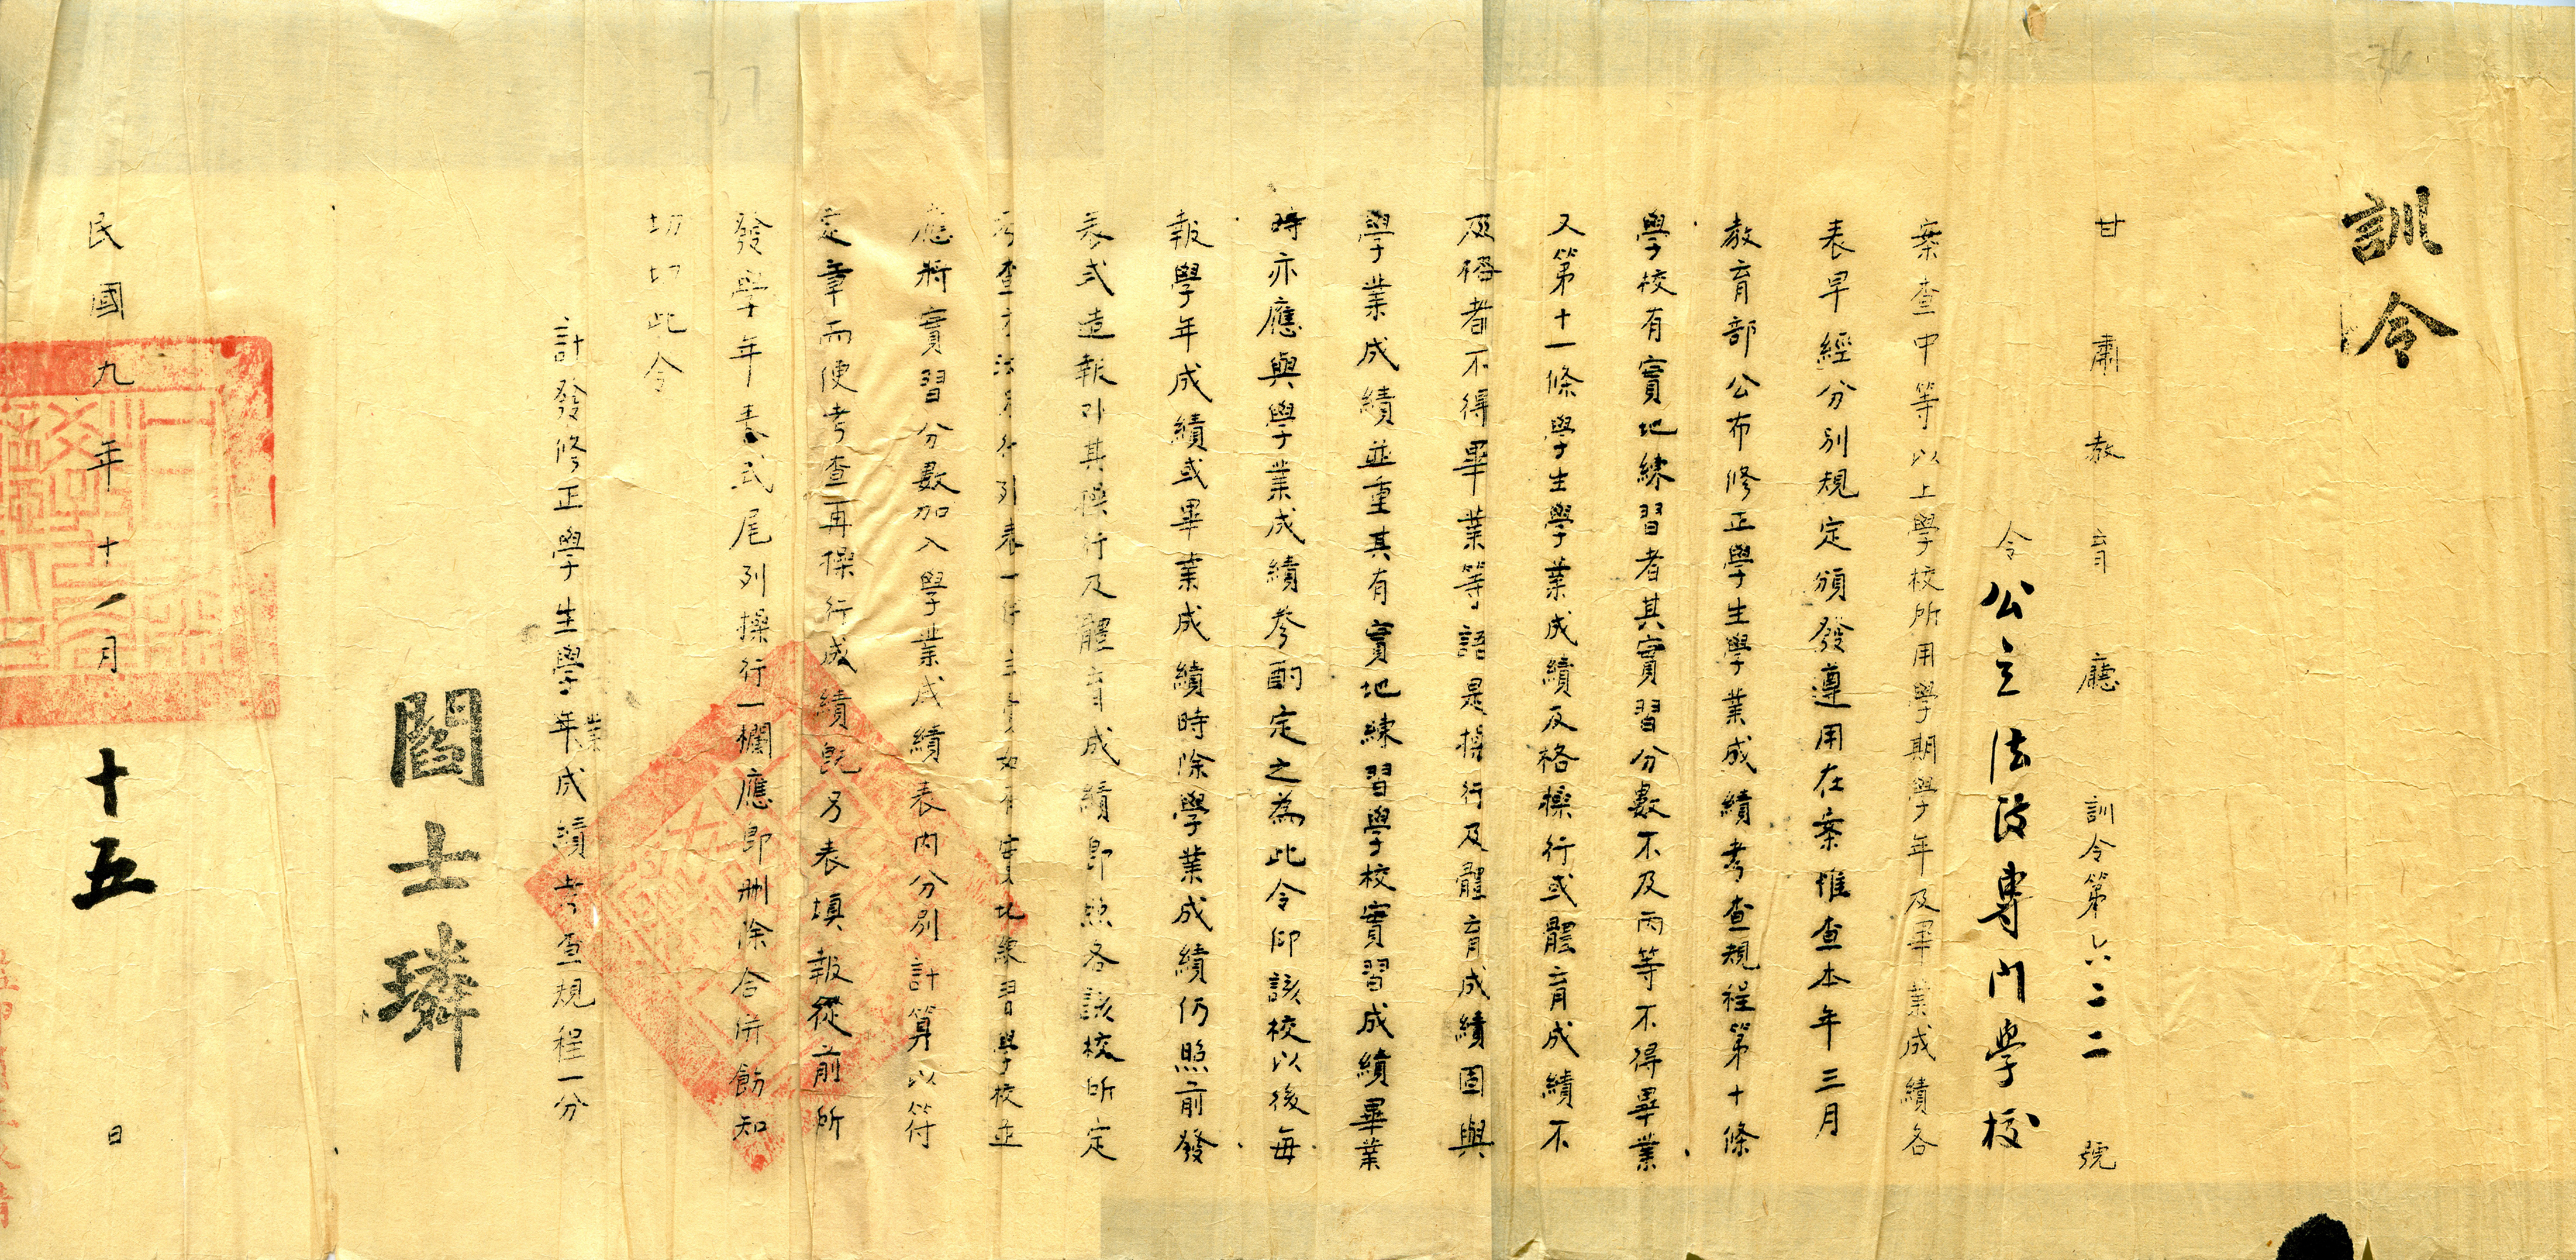 訓令
甘肅教育廳訓令第六二二號
令公立法政專門學校
案查中等以上學校所用學期學年及畢業成績各
表早經分別規定頒發遵用在案惟查本年三月
教育部公布修正學生學業成績考查規程第十條
學校有實地練習者其實習分數不及丙等不得畢業
又第十一條學生學業成績及格操行或體育成績不
及格者不得畢業等語是操行及體育成績固與
學業成績並重其有實地練習學校實習成績畢業
時亦應與學業成績參酌定之為此令仰該校以後每
報學年成績或畢業成績時除學業成績仍照前發
表式造報外其操行及體育成績即照各該校所定
考查方法另行列表一併呈實地練習學校並
應將實習分數加入學業成績表内分别計算以符
定章而便考查再操行成績既另表填報從前所
發學年表式尾列操行一欄應即刪除合併飭知
切切此令
計發修正學生學業年成績考查規程一分
閻士璘
民國九年十一月十五日
36
37